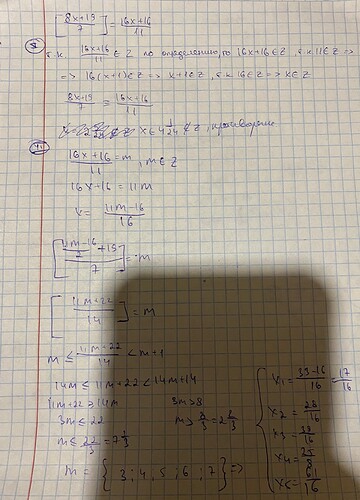 [8x+19/7] = 16x+16/11
т.к 16x+16/11 ∈ Z по определению, то 16x+16 ∈ Z, т.к 11 ∈ Z =>
=> 16(x+1) ∈ Z => x+1 ∈ Z, т.к 16 ∈ Z => x ∈ Z
8x+19/7 = 16x+16/11
x ∈ 4 1/24 ∉ Z, противоречие
16x+16/11 = m, m ∈ Z
16x+16 = 11m
x = 11m-16/16
[11m-16/2 +19/7] = m
[11m+22/14] = m
m ≤ 11m+22/14 < m+1
14m ≤ 11m+22 < 14m+14
11m+22 ≥ 14m 3m > 8
3m ≤ 22 m > 8/3 = 2 2/3
m ≤ 22/3 = 7 1/3
m = {3; 4; 5; 6; 7} =>
x1 = 33-16/16 = 17/16
x2 = 28/16
x3 = 39/16
x4 = 25/8
x5 = /16